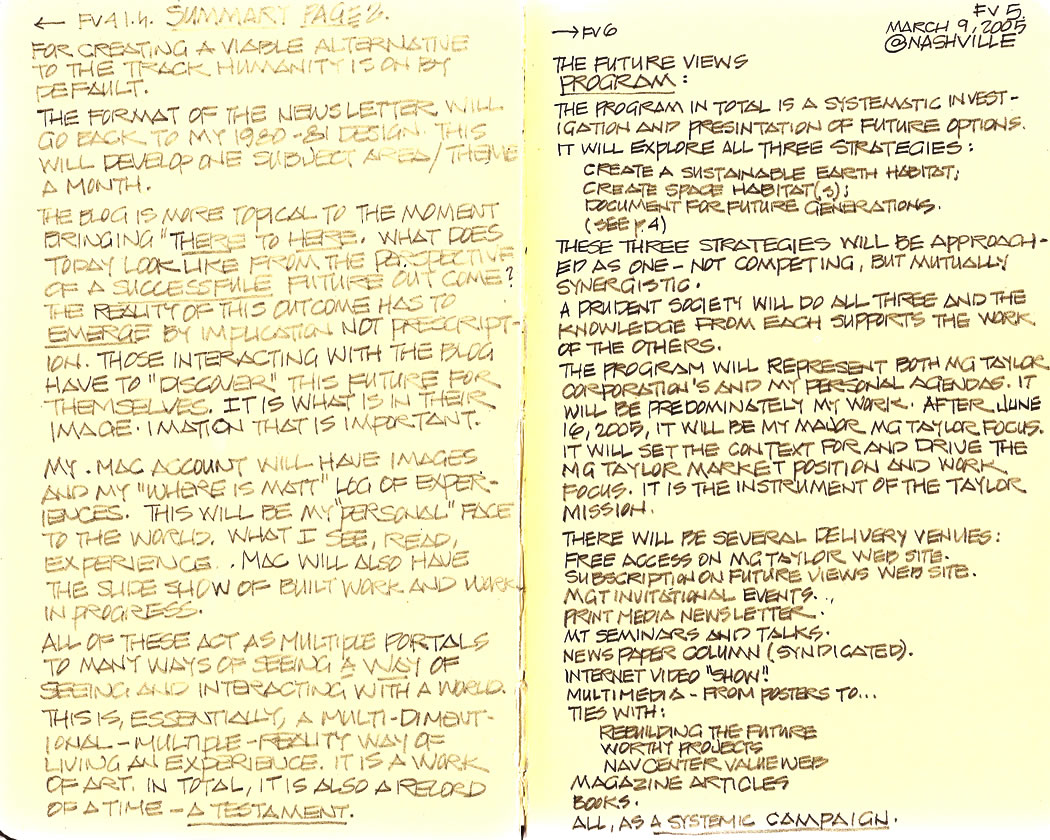 ← FV41.4. SUMMARY PAGE 2.
FOR CREATING A VIABLE ALTERNATIVE
TO THE TRACK HUMANITY IS ON BY
DEFAULT.
THE FORMAT OF THE NEWSLETTER WILL
GO BACK TO MY 1980-81 DESIGN. THIS
WILL DEVELOP ONE SUBJECT AREA/THEME
A MONTH.
THE BLOG IS MORE TOPICAL TO THE MOMENT
BRINGING "THERE TO HERE. WHAT DOES
TODAY LOOK LIKE FROM THE PERSPECTIVE
OF A SUCCESSFULE FUTURE OUT COME?
THE REALITY OF THIS OUTCOME HAS TO
EMERGE BY IMPLICATION NOT PRESCRIPT-
ION. THOSE INTERACTING WITH THE BLOG
HAVE TO "DISCOVER" THIS FUTURE FOR
THEMSELVES. IT IS WHAT IS IN THEIR
IMAGE·IMATION THAT IS IMPORTANT.
MY .MAC ACCOUNT WILL HAVE IMAGES
AND MY "WHERE IS MATT" LOG OF EXPER-
IENCES. THIS WILL BE MY "PERSONAL" FACE
TO THE WORLD. WHAT I SEE, READ,
EXPERIENCE. .MAC WILL ALSO HAVE
THE SLIDE SHOW OF BUILT WORK AND WORK
IN PROGRESS.
ALL OF THESE ACT AS MULTIPLE PORTALS
TO MANY WAYS OF SEEING A WAY OF
SEEING AND INTERACTING WITH A WORLD.
THIS IS, ESSENTIALLY, A MULTI-DIMENT-
IONAL-MULTIPLE-REALITY WAY OF
LIVING AN EXPERIENCE. IT IS A WORK
OF ART. IN TOTAL, IT IS ALSO A RECORD
OF A TIME - A TESTAMENT.
→ FV6
FV 5.
MARCH 9, 2005
@NASHVILLE
THE FUTURE VIEWS
PROGRAM:
THE PROGRAM IN TOTAL IS A SYSTEMATIC INVEST-
IGATION AND PRESINTATION OF FUTURE OPTIONS.
IT WILL EXPLORE ALL THREE STRATEGIES:
CREATE A SUSTAINABLE EARTH HABITAT;
CREATE SPACE HABITAT(S);
DOCUMENT FOR FUTURE GENERATIONS.
(SEE p.4)
THESE THREE STRATEGIES WILL BE APPROACH-
ED AS ONE - NOT COMPETING, BUT MUTUALLY
SYNERGISTIC.
A PRUDENT SOCIETY WILL DO ALL THREE AND THE
KNOWLEDGE FROM EACH SUPPORTS THE WORK
OF THE OTHERS.
THE PROGRAM WILL REPRESENT BOTH MG TAYLOR
CORPORATION'S AND MY PERSONAL AGENDAS. IT
WILL BE PREDOMINATELY MY WORK. AFTER JUNE
16, 2005, IT WILL BE MY MAJOR MG TAYLOR FOCUS.
IT WILL SET THE CONTEXT FOR AND DRIVE THE
MG TAYLOR MARKET POSITION AND WORK
FOCUS. IT IS THE INSTRUMENT OF THE TAYLOR
MISSION.
THERE WILL BE SEVERAL DELIVERY VENUES:
FREE ACCESS ON MG TAYLOR WEB SITE.
SUBSCRIPTION ON FUTURE VIEWS WEB SITE.
MGT INVITATIONAL EVENTS..,
PRINT MEDIA NEWSLETTER.
MT SEMINARS AND TALKS.
NEWS PAPER COLUMN (SYNDICATED).
INTERNET VIDEO "SHOW".
MULTIMEDIA - FROM POSTERS TO...
TIES WITH:
REBUILDING THE FUTURE
WORTHY PROJECTS
NAVCENTER VALUE WEB
MAGAZINE ARTICLES
BOOKS.
ALL, AS A SYSTEMIC CAMPAIGN.